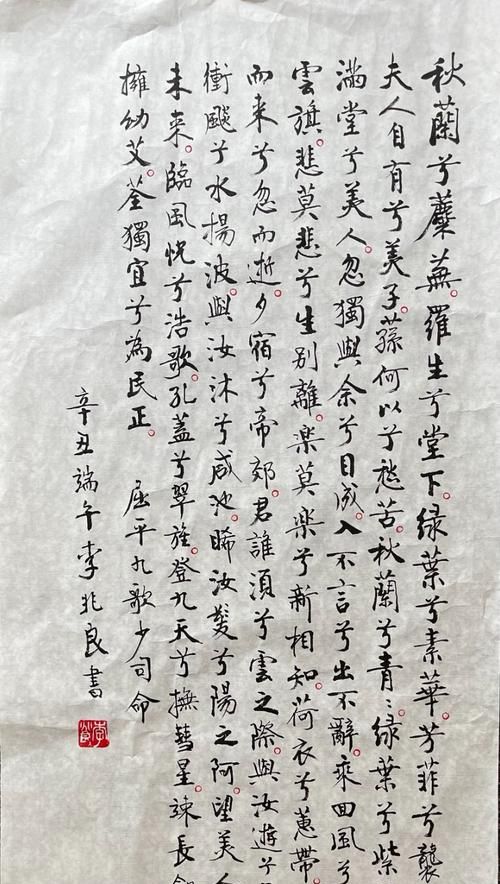 秋蘭兮蘪蕪。羅生兮堂下。綠葉兮素華。芳菲兮襲
夫人自有兮美子。蓀何以兮愁苦。秋蘭兮青〻。綠葉兮紫
滿堂兮美人。忽獨與余兮目成。入不言兮出不辭。乘回風兮
雲旗。悲莫悲兮生別離。樂莫樂兮新相知。荷衣兮蕙帶。
而来兮忽而逝。夕宿兮帝郊。君誰須兮雲之際。與汝遊兮
衝飈兮水揚波。與汝沐兮咸池。晞汝髮兮陽之阿。望美人
未来。臨風怳兮浩歌。孔蓋兮翠旌。登九天兮撫彗星。竦長劍
擁幼艾。荃獨宜兮為民正。
屈平九歌少司命
辛丑端午李兆良書